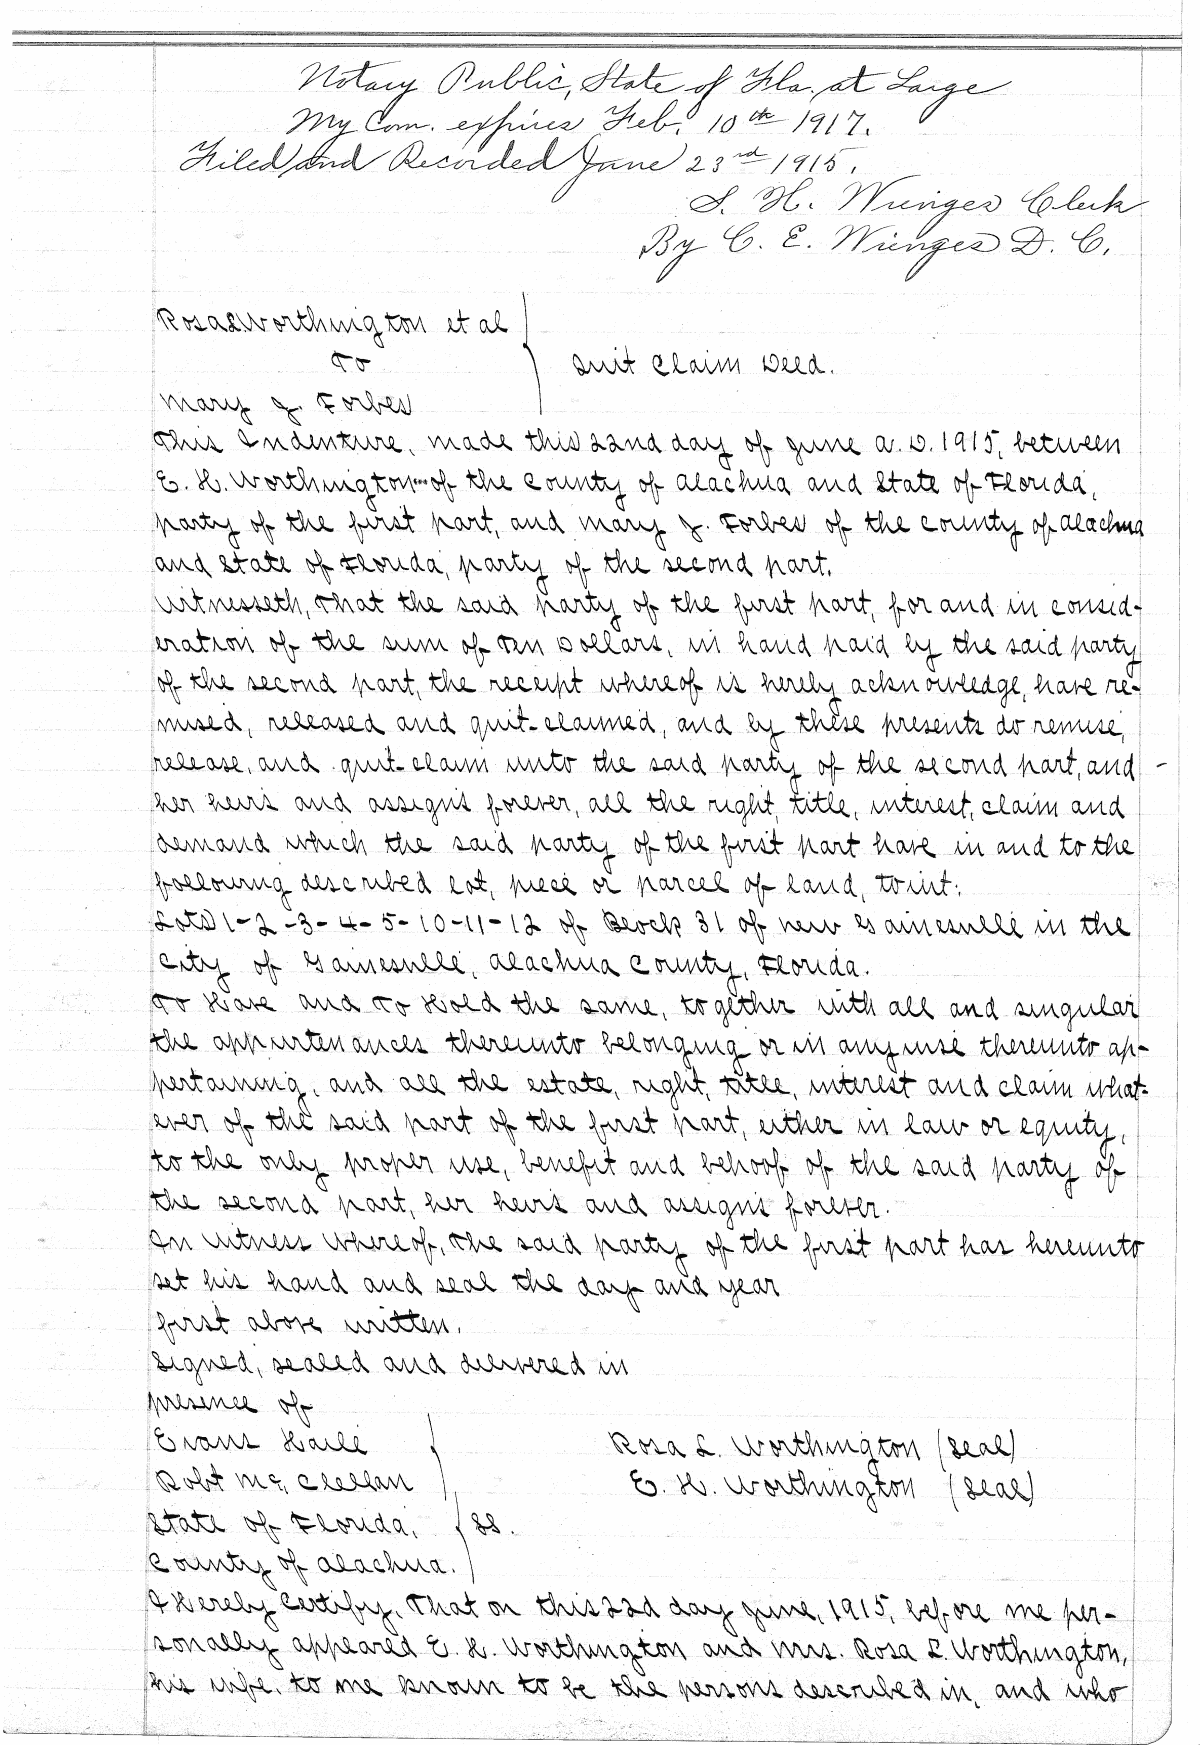 Notary Public, State of Fla. at Large
My Com. expires Feb. 10th 1917.
Filed and Recorded June 23rd 1915.
S. H. Wienges Clerk
By C. E. Wienges D. C.
Rosa L Worthington et al
To
Quit Claim Deed.
Mary J. Forbes
This Indenture, made this 22nd day of June A. D. 1915, between
E. H. Worthington of the County of Alachua and State of Florida,
party of the first part, and Mary J. Forbes of the County of Alachua
and State of Florida, party of the second part.
Witnesseth, That the said party of the first part, for and in consid-
eration of the sum of Ten Dollars, in hand paid by the said party
of the second part, the receipt whereof is hereby acknowledge, have re-
mised, released and quit-claimed, and by these presents do remise,
release, and quit-claim unto the said party of the second part, and -
her heirs and assigns forever, all the right, title, interest, claim and
demand which the said party of the first part have in and to the
following described lot, piece or parcel of land, towit:
Lots 1-2-3-4-5-10-11-12 of Block 31 of New Gainesville in the
City of Gainesville, Alachua County, Florida.
To Have and To Hold the same, together with all and singular
the appurtenances thereunto belonging or in anywise thereunto ap-
pertaining, and all the estate, right, title, interest and claim what-
ever of the said part of the first part, either in law or equity,
to the only proper use, benefit and behoof of the said party of
the second part, her heirs and assigns forever.
In Witness Whereof, The said party of the first part has hereunto
set his hand and seal the day and year
first above written.
Signed, sealed and delivered in
presence of
Evans Haile
Rosa L. Worthington (Seal)
Robt Mc. Clellan
E. H. Worthington (Seal)
State of Florida, SS.
County of Alachua.
I Hereby Certify, That on this 22d day June, 1915, before me per-
sonally appeared E. H. Worthington and Mrs. Rosa L. Worthington,
his wife, to me known to be the persons described in, and who